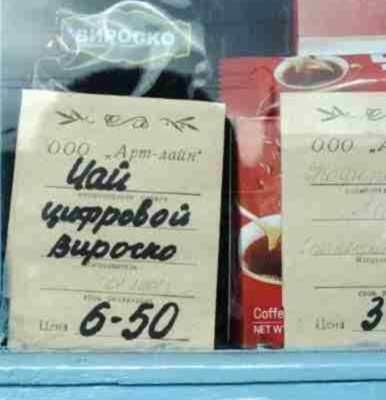 ВИРОСКО
ООО „Арт-лайн"
Чай
цифровой
Вироско
Цена 6-50
ООО „А
Цена 3
Coffe
NET W